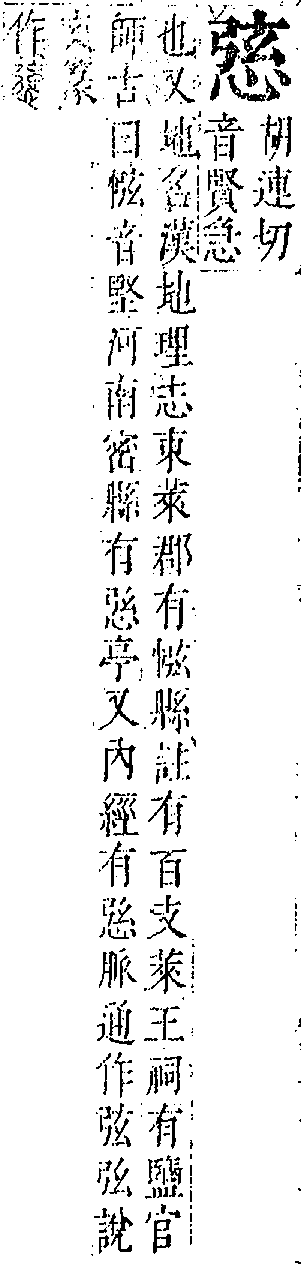 惤
胡連切
音賢急
也又地名漢地理志東萊郡有惤縣註有百支萊王祠有鹽官
師古曰惤音堅河南密縣有惤亭又內經有惤脈通作弦弦說
文篆
作